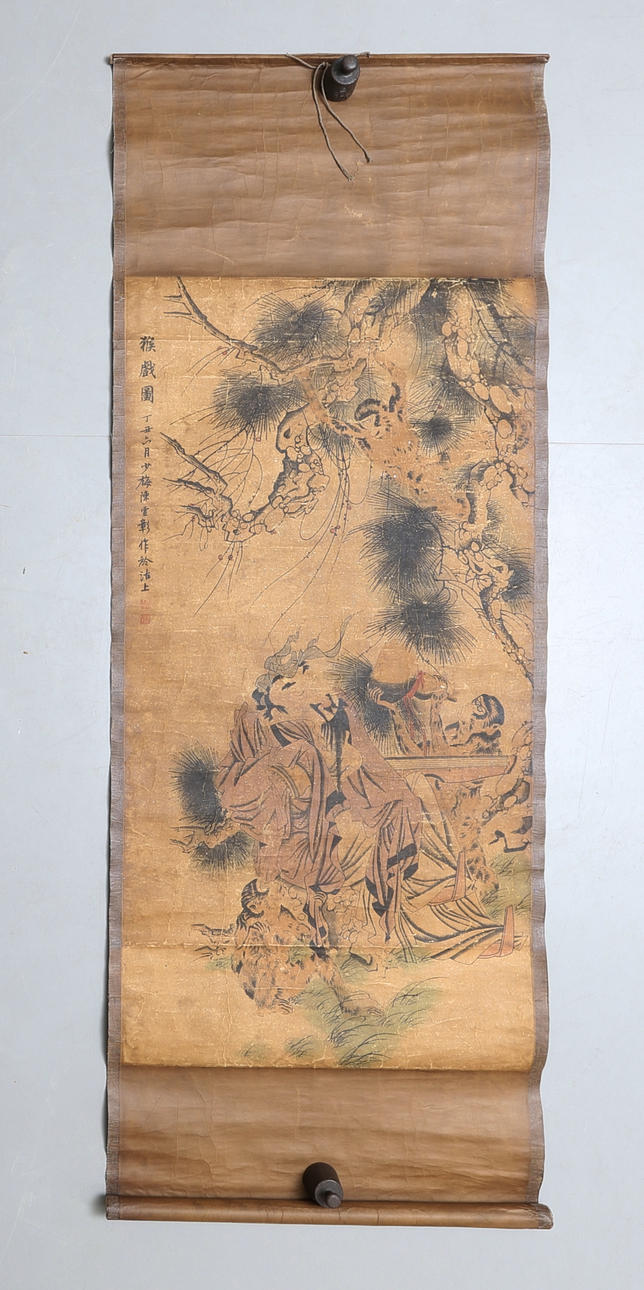 猴戲圖
丁丑六月少梅陳雲彰作於沽上